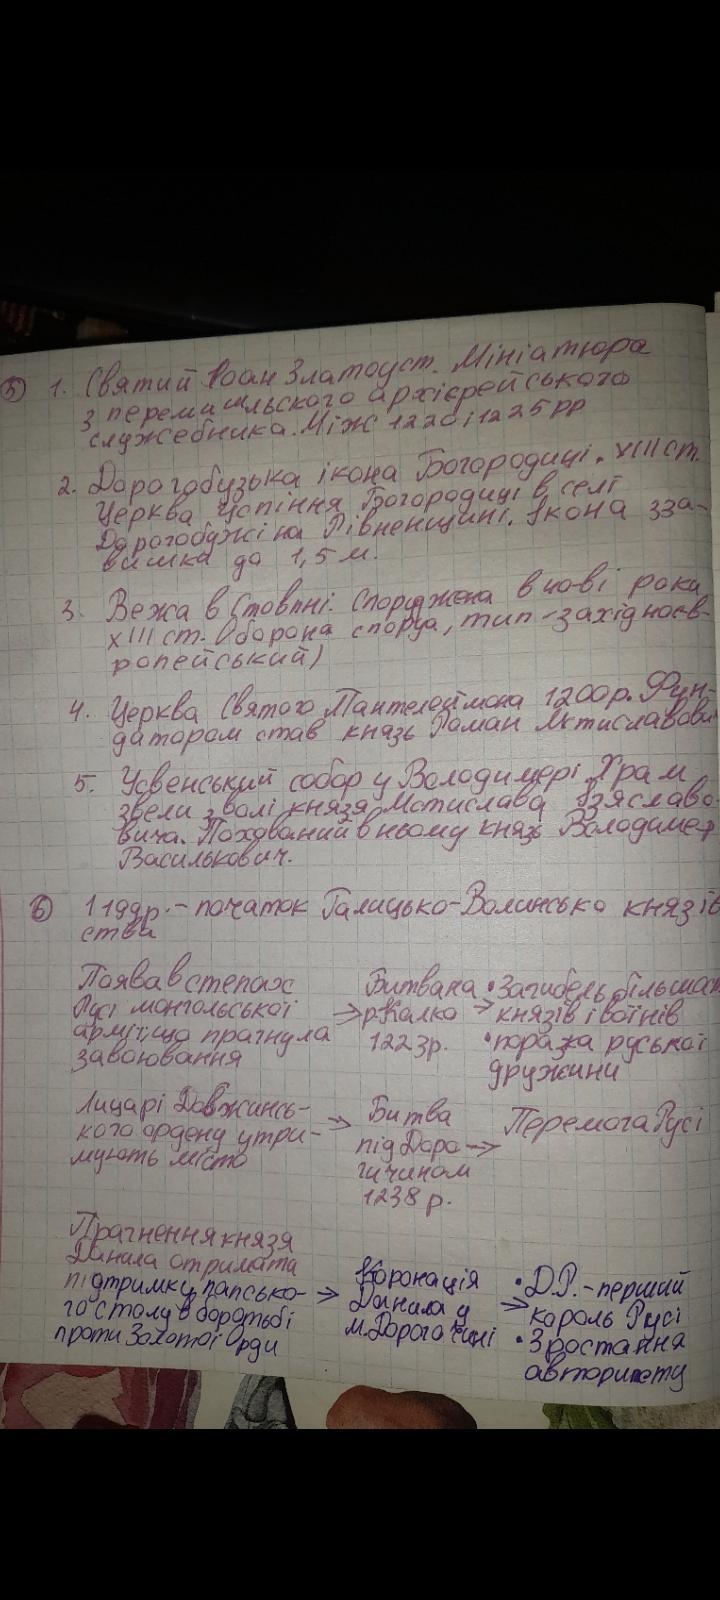 5) 1. Святий Іоан Златоуст. Мініатюра
з перемишльського архієрейського
служебника. Між 1220 і 1225 рр
2. Дорогобузька ікона Богородиці. XIII ст.
Церква Успіння Богородиці в селі
Дорогобужі на Рівненщині. Ікона зза-
вишки до 1,5 м.
3. Вежа в Стовпні. Споруджена в нові роки
XIII ст. (оборона споруа, тип - західноєв-
ропейський)
4. Церква Святого Пантелеймона 1200р. Фун-
датором став князь Роман Мстиславови
5. Усвенський собор у Володимері Храм
звели з волі князя Мстислава Ізяславо-
вича. Похований в ньому князь Володимер
Василькович.
6) 1199р. - початок Галицько-Волинсько князів
ства
Поява в степах
Русі монгольської
армії, що прагнула
завоювання
→ Битва на
р. Калка
1223р.
→ • Загибель більшост
князів і воїнів
• поразка руської
дружини
Лицарі Довжинсь-
кого ордену утри-
мують місто
→ Битва
під Доро
гичином
1238 р.
→ Перемога Русі
Прагнення князя
Данила отримата
підтримку папсько-
го столу в боротьбі
проти Золотої Орди
→ Коронація
Данила у
м. Дорогочині
→ • Д.Р. - перший
король Русі
• Зростання
авторитету